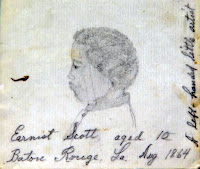 Earnest Scott aged 12
Batore Rouge, La. Aug 1864
A left handed little artist